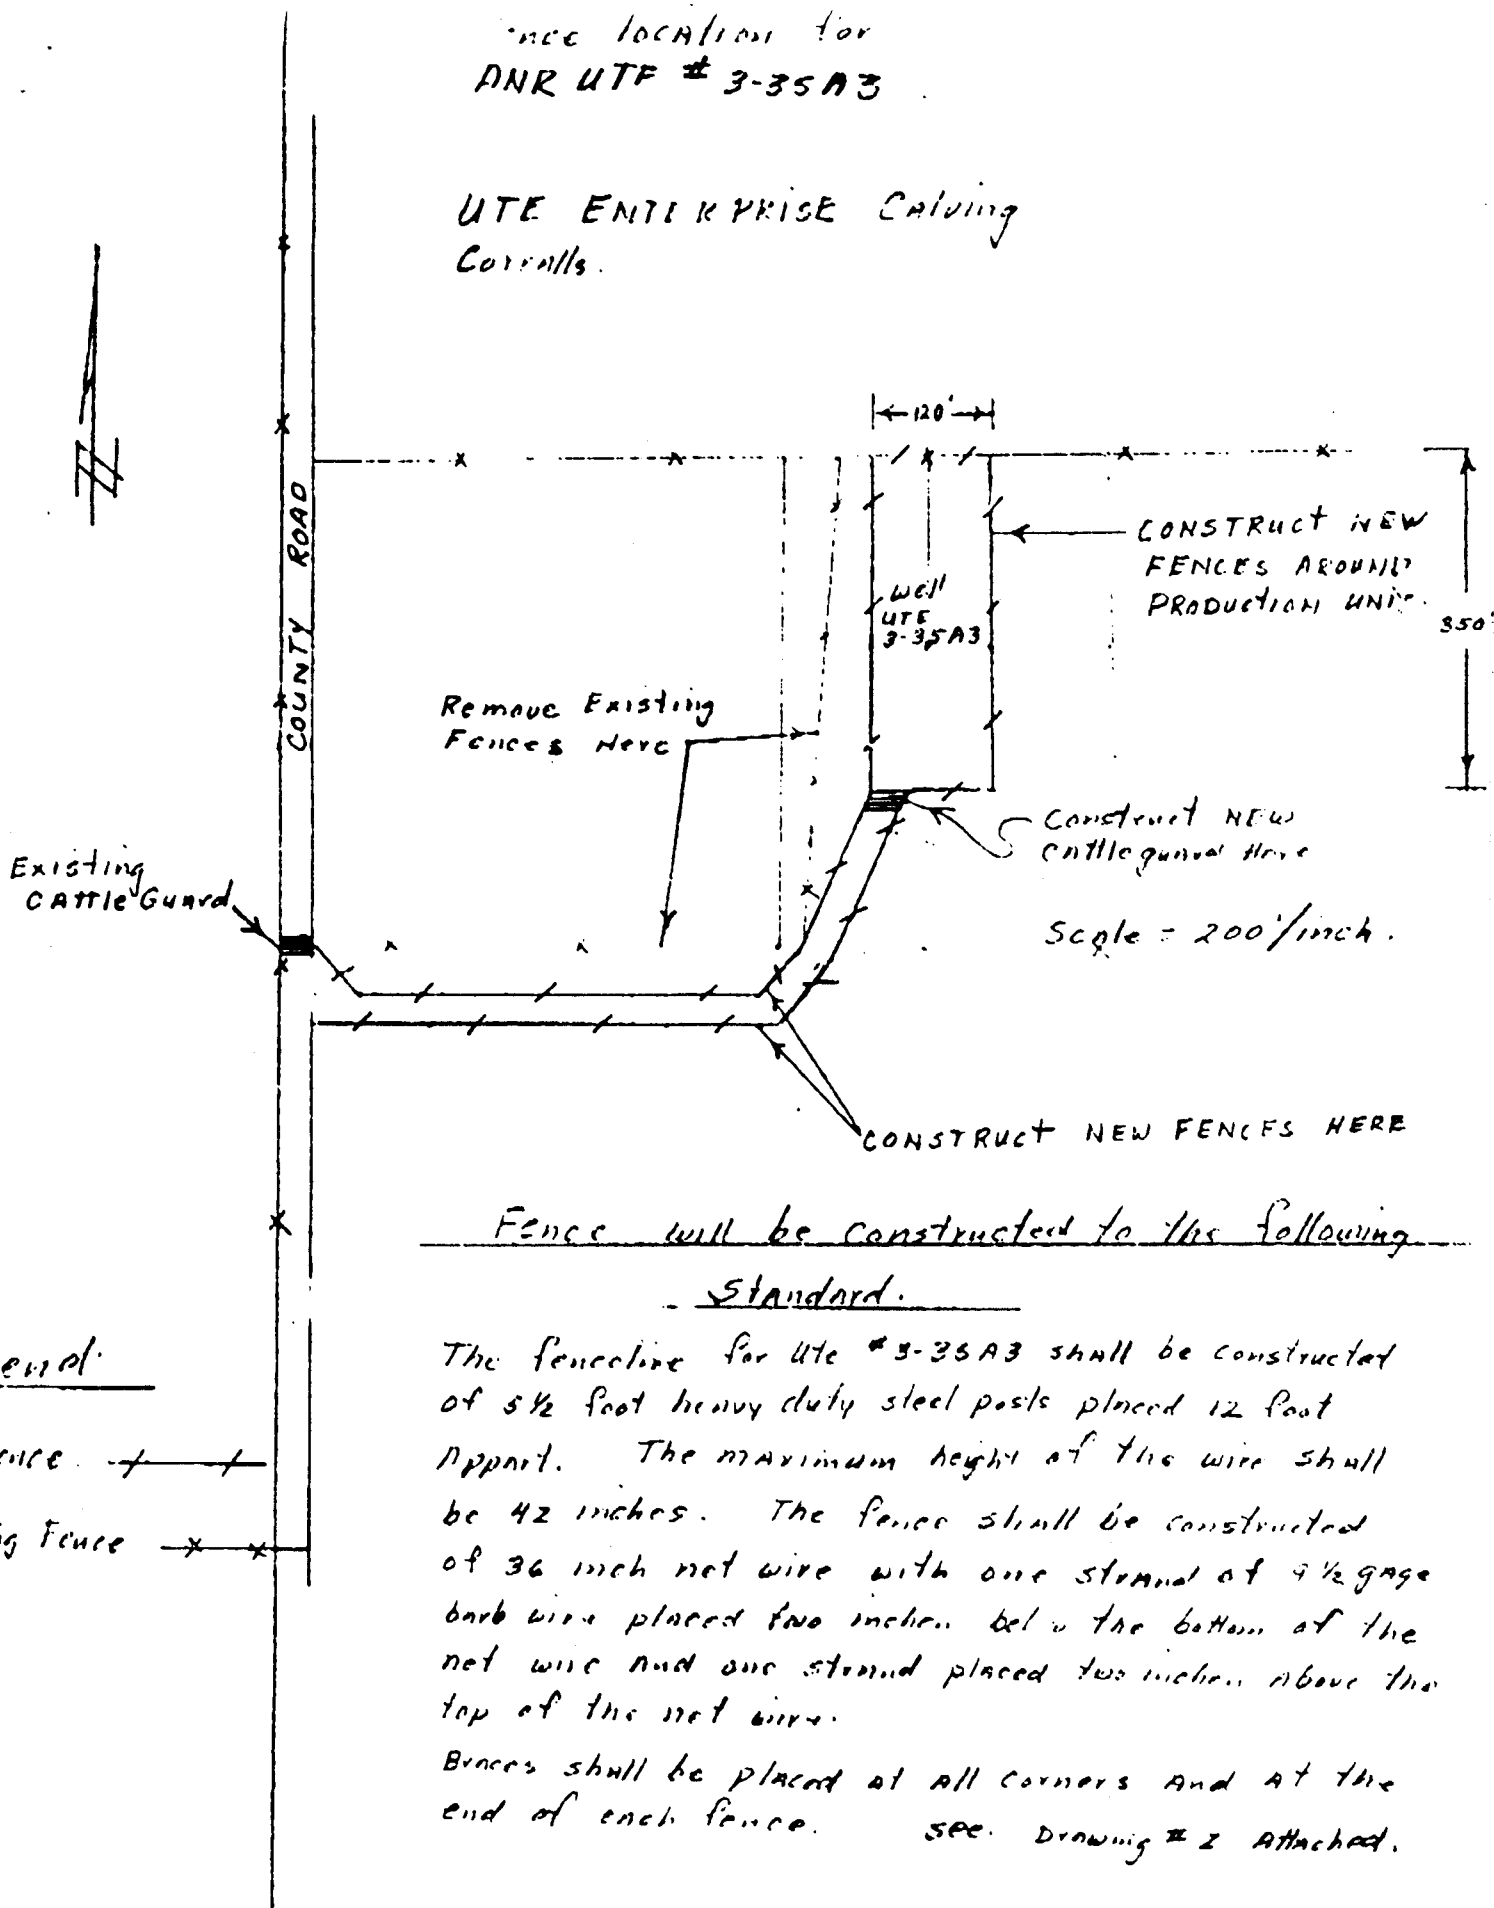 nce location for
ANR UTE # 3-35A3
UTE ENTERPRISE Calving
Corralls.
120'
COUNTY ROAD
CONSTRUCT NEW
FENCES AROUND
PRODUCTION UNIT.
350'
Well
UTE
3-35A3
Remove Existing
Fences Here
Construct NEW
Cattleguard Here
Existing
CATTLE Guard
Scale = 200'/inch.
CONSTRUCT NEW FENCES HERE
Fence will be constructed to the following
Standard.
The fenceline for Ute #3-35A3 shall be constructed
of 5½ foot heavy duty steel posts placed 12 foot
Appart. The maximum height of the wire shall
be 42 inches. The fence shall be constructed
of 36 inch net wire with one strand of 9½ gage
barb wire placed two inches bel the bottom of the
net wire and one strand placed two inches Above the
top of the net wire.
Braces shall be placed at All Corners And At the
end of each fence. see Drawing # 2 Attached.
end.
ence
g Fence